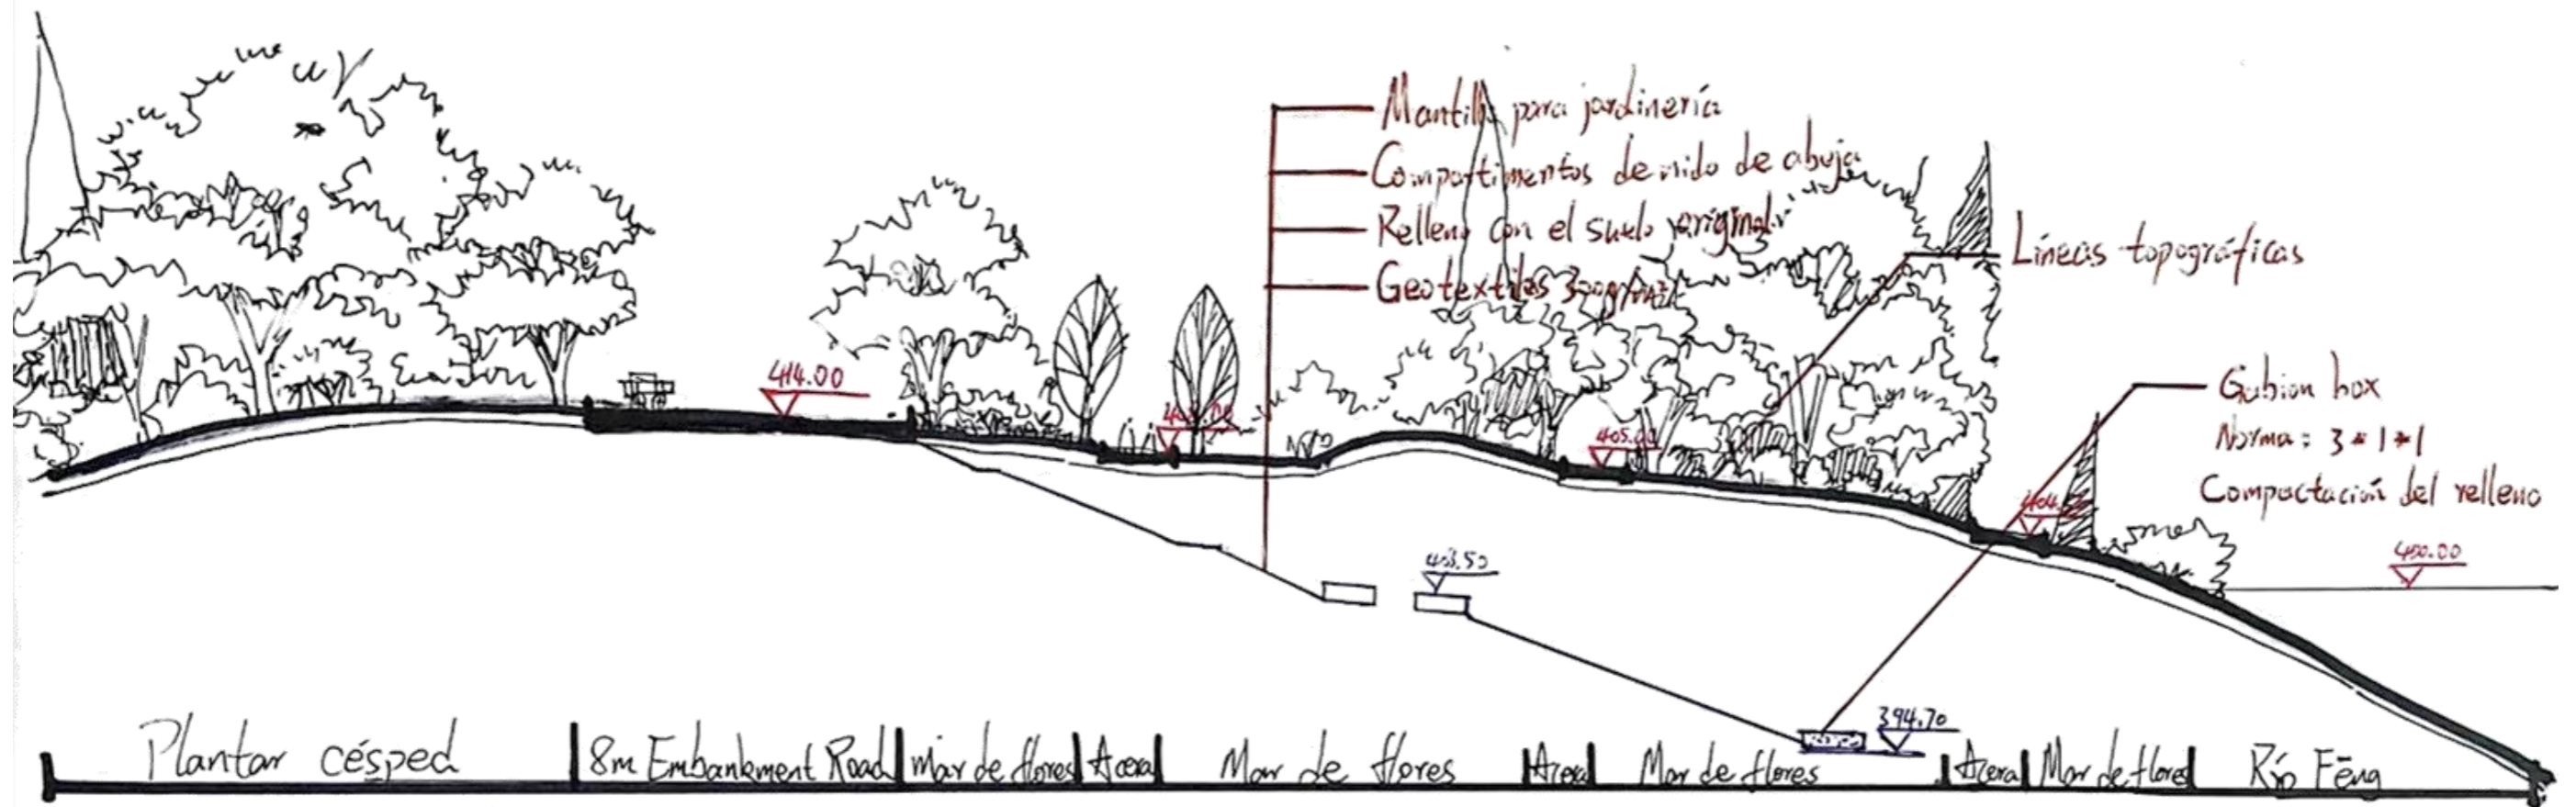 Mantillo para jardinería
Compartimentos de nido de abeja
Relleno con el suelo original
Geotextiles 300g/m2
Líneas topográficas
Gabion box
Norma: 3*1*1
Compactación del relleno
414.00
405.00
404.
400.00
403.50
394.70
Plantar césped
8m Embankment Road
Mar de flores
Acera
Mar de flores
Acera
Mar de flores
Acera
Mar de flores
Río Fēng